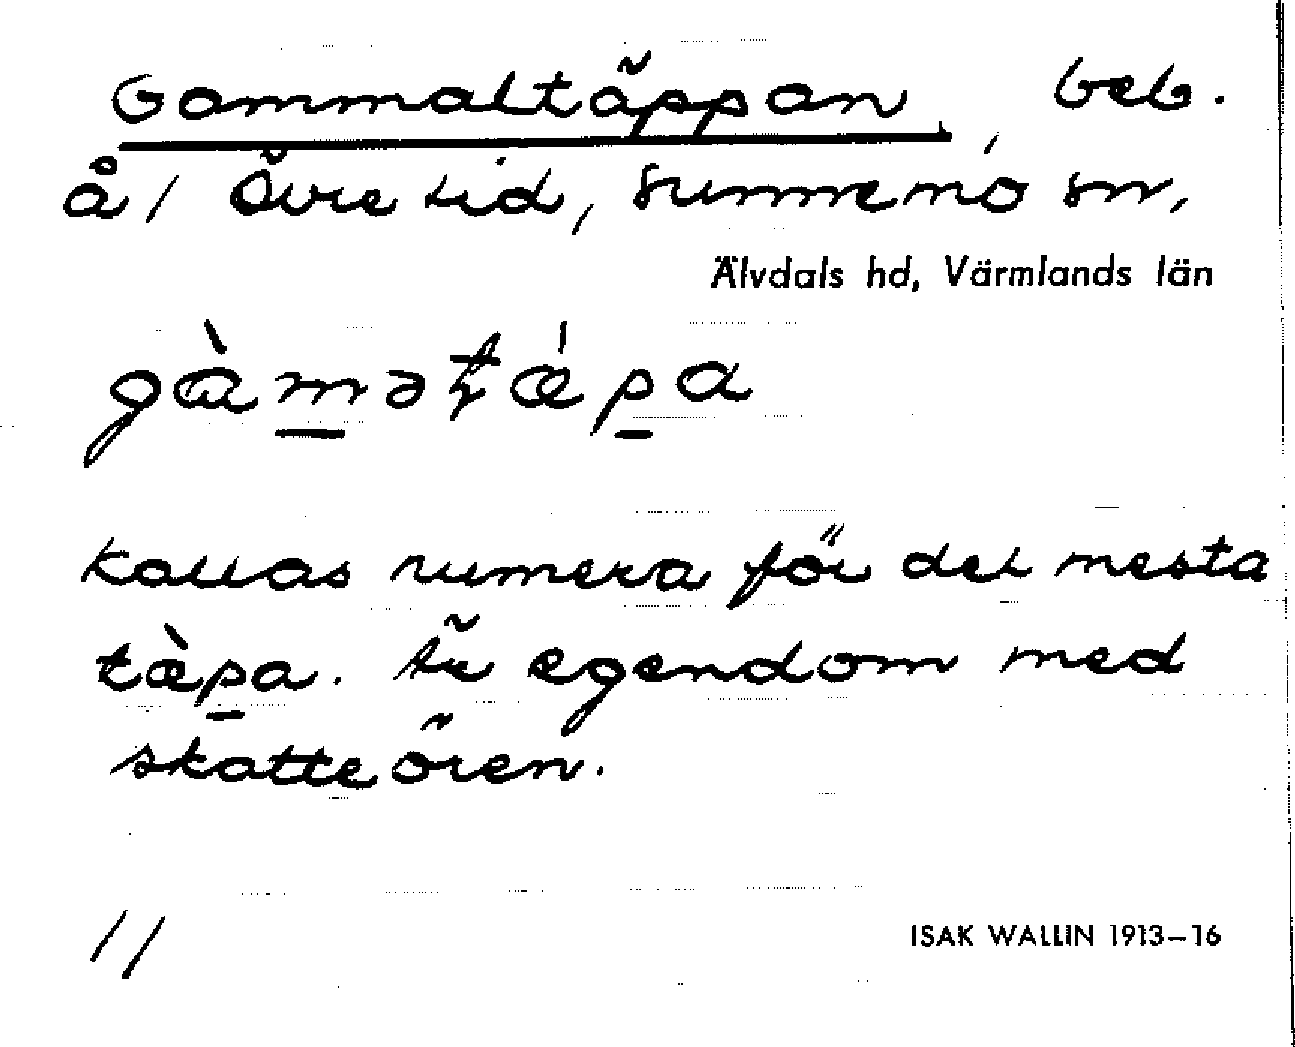 Gammaltäppan, beb.
å / Övre Lid, Sunnemo sn,
Älvdals hd, Värmlands län
gàmətǽpa
kallas numera för det mesta
tæ̀pa. är egendom med
skatteören.
11
ISAK WALLIN 1913–16